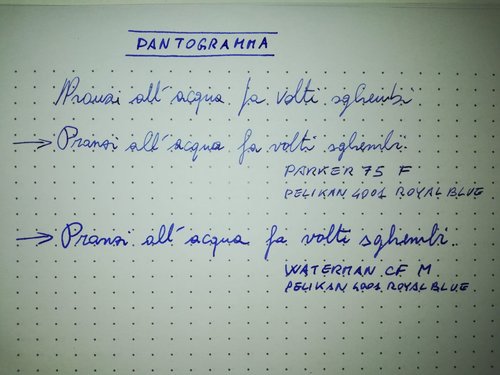 PANTOGRAMMA
Pranzi all'acqua fa volti sghembi
→ Pranzi all'acqua fa volti sghembi.
PARKER 75 F
PELIKAN 4001 ROYAL BLUE
→ Pranzi all'acqua fa volti sghembi.
WATERMAN CF M
PELIKAN 4001 ROYAL BLUE.